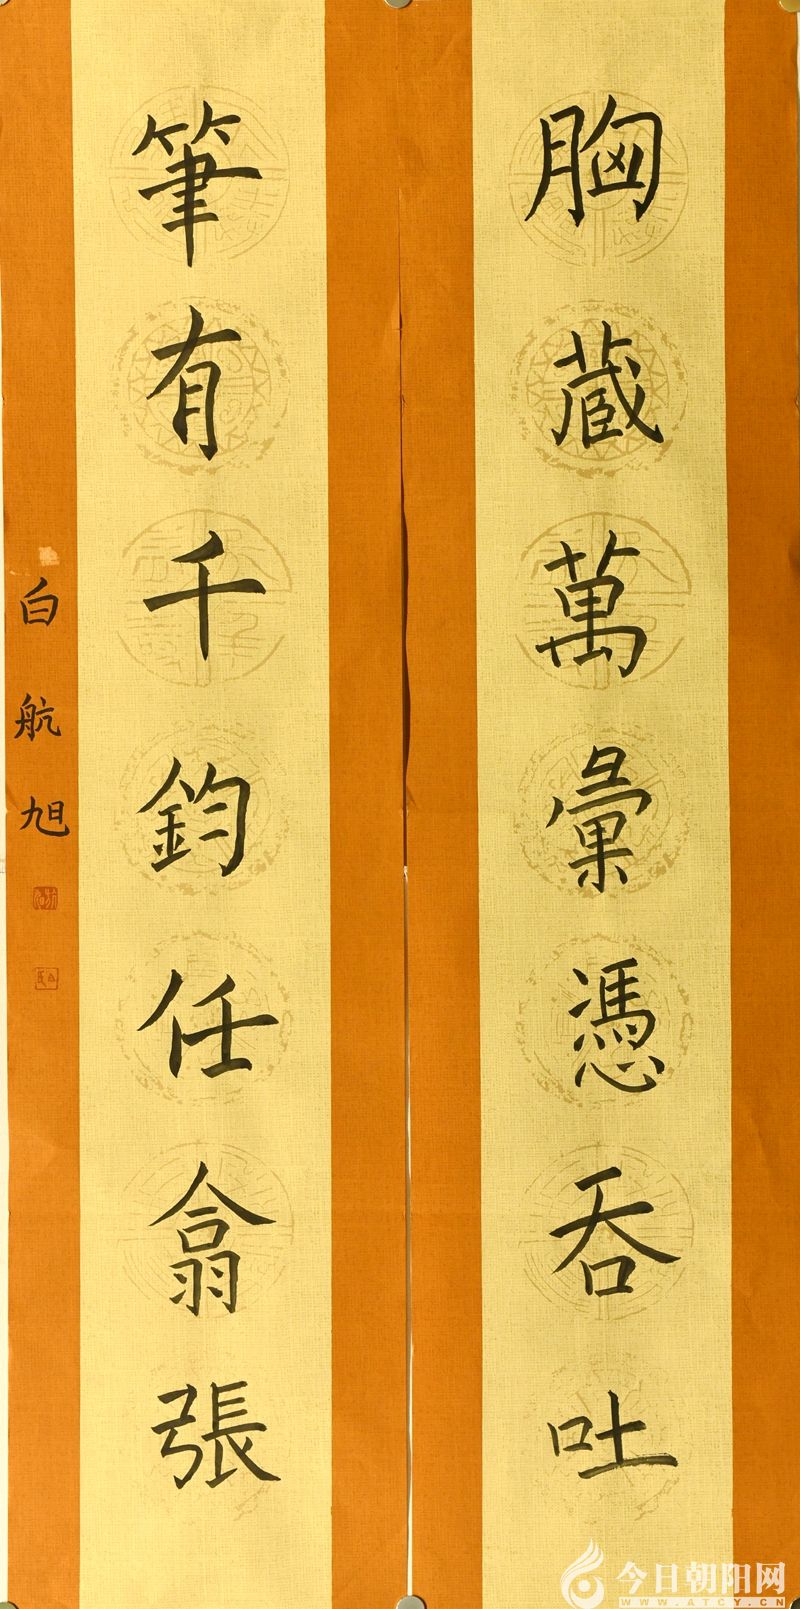 胸藏萬彙憑吞吐
筆有千鈞任翕張
白航旭
今日朝阳网
WWW.ATCY.CN